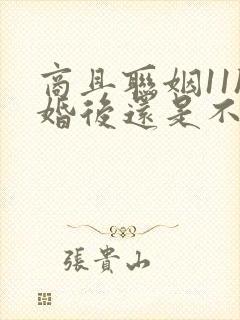 商且聯姻11
婚後還是不
張貴山